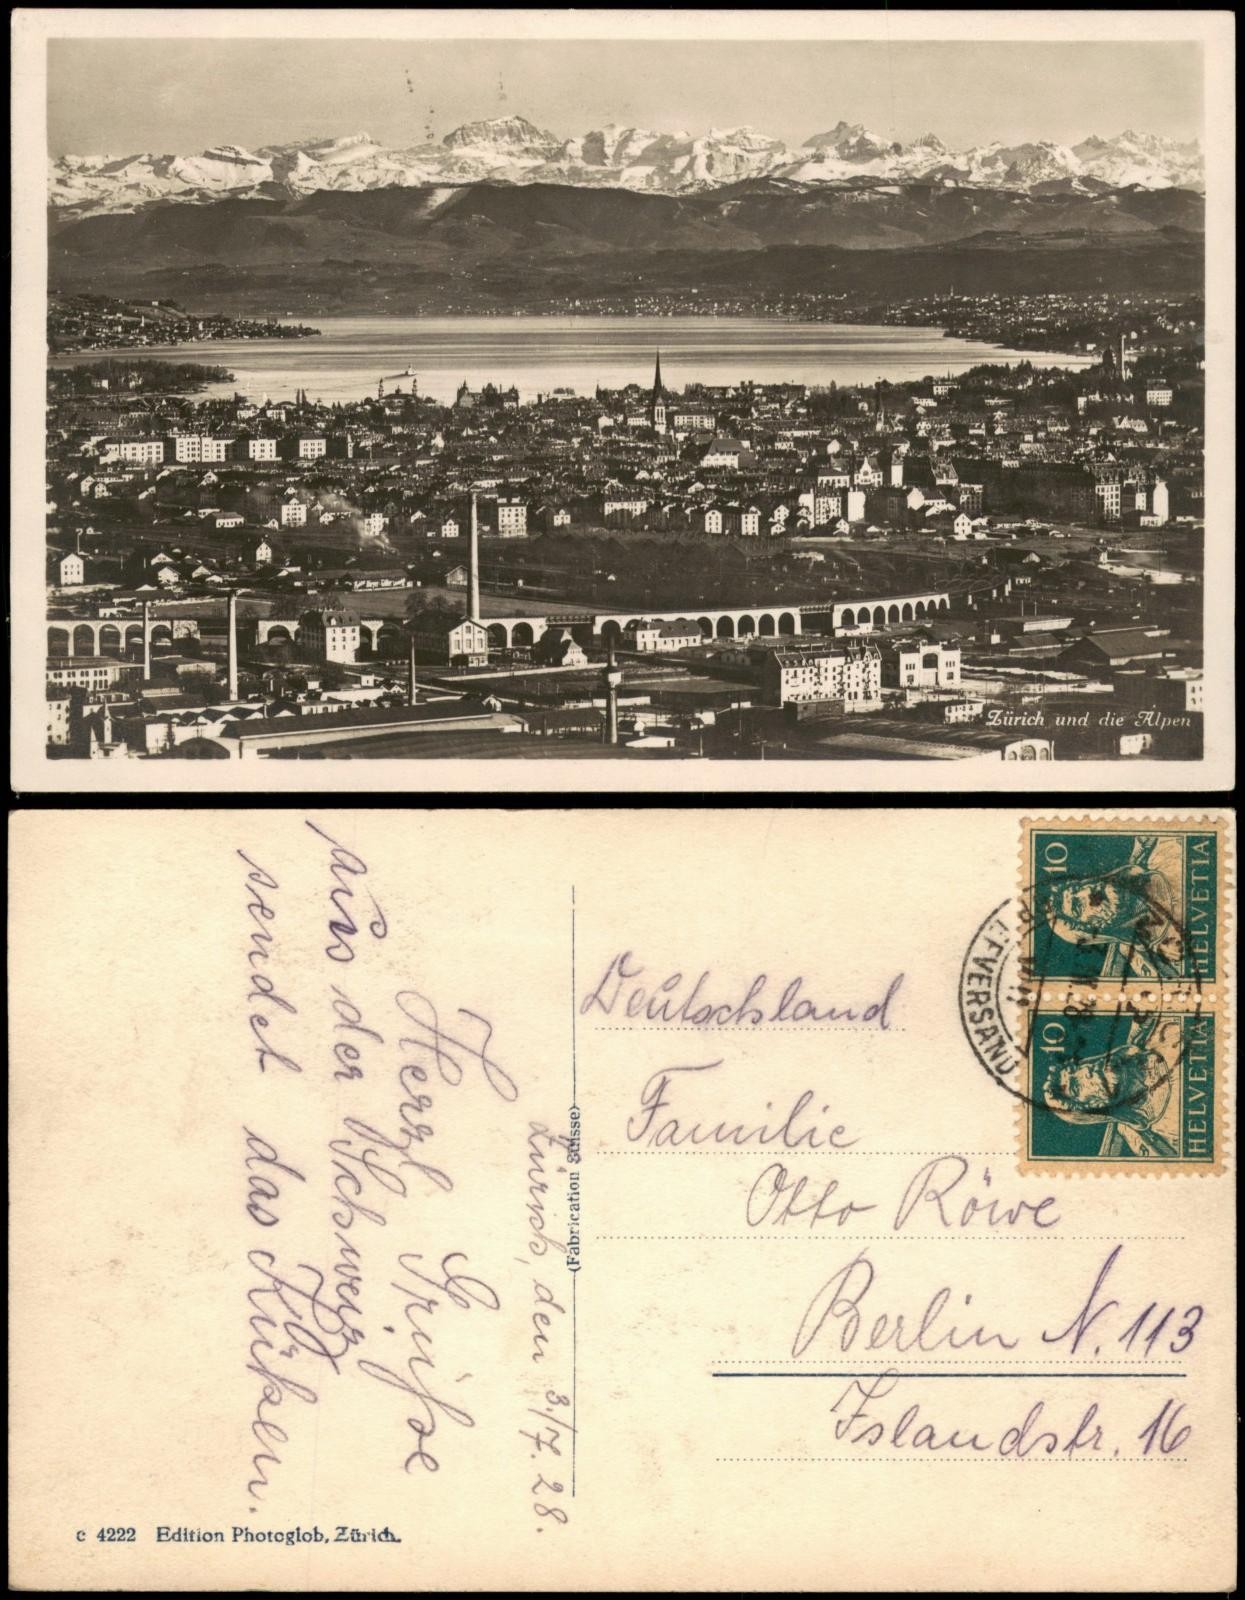 Zürich und die Alpen
Zürich, den 3./7. 28.
Herzl. Grüße
aus der Schweiz
sendet das Küken.
(Fabrication Suisse)
Deutschland
Familie
Otto Röwe
Berlin N. 113
Islandstr. 16
10
HELVETIA
10
HELVETIA
BRIEFVERSAND
c 4222 Edition Photoglob, Zürich.